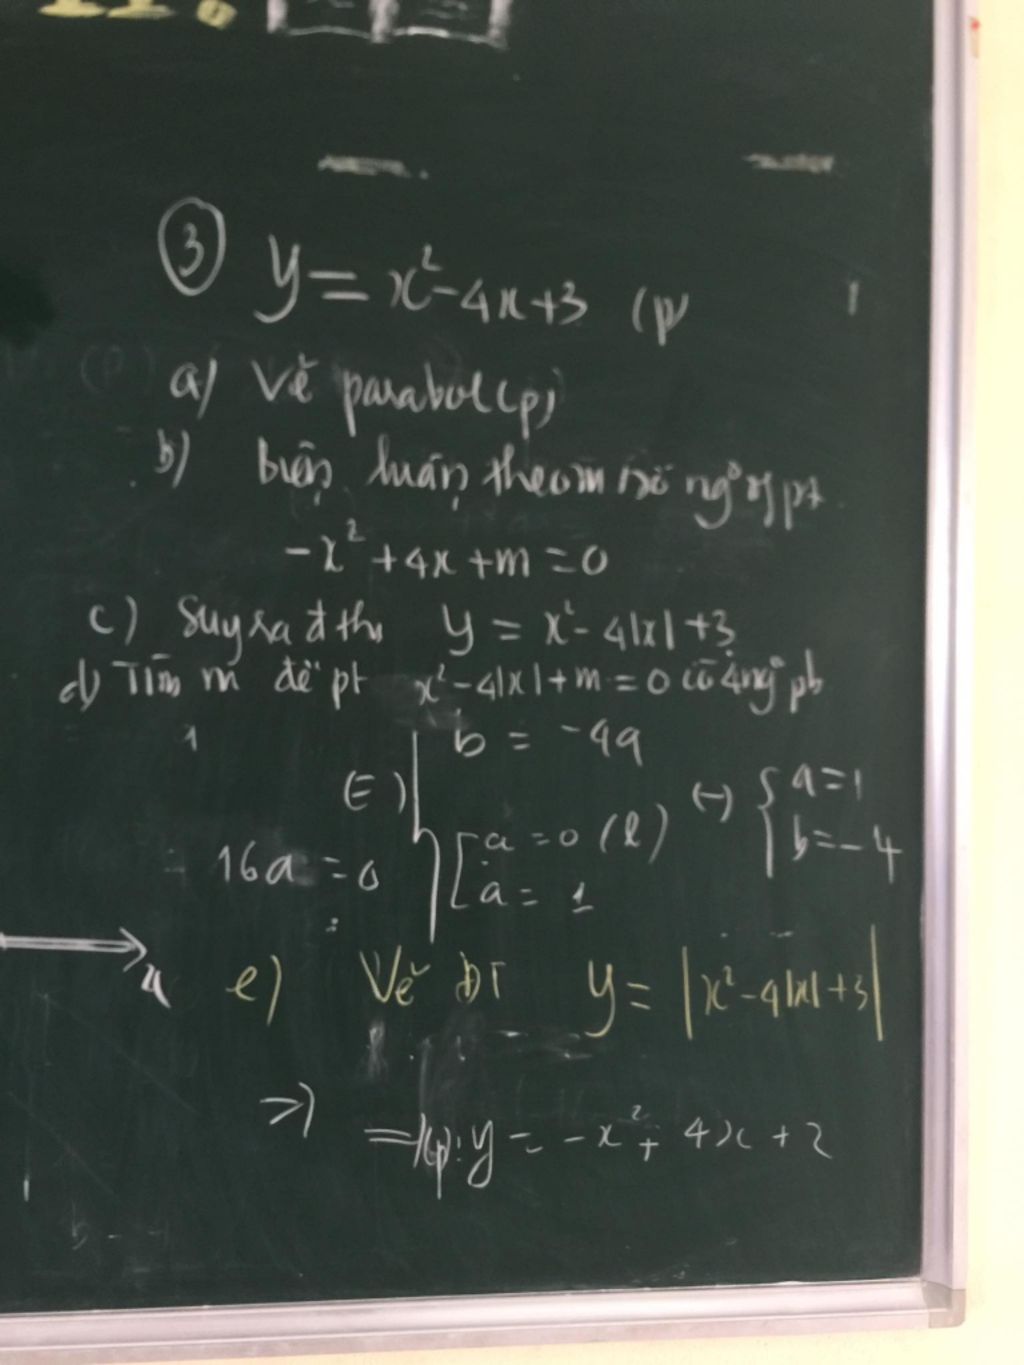 ③ y = x² - 4x + 3 (p)
a) Vẽ parabol (p)
b) biện luận theo m số ng⁰ of pt
-x² + 4x + m = 0
c) Suy ra đ thị y = x² - 4|x| + 3
d) Tìm m để pt x² - 4|x| + m = 0 có 4 ng⁰ pb
b = -4a
a = 0 (l)
a = 1
a = 1
b = -4
16a = 0
e) Vẽ ĐT y = |x² - 4|x| + 3|
=> (p): y = -x² + 4x + 2